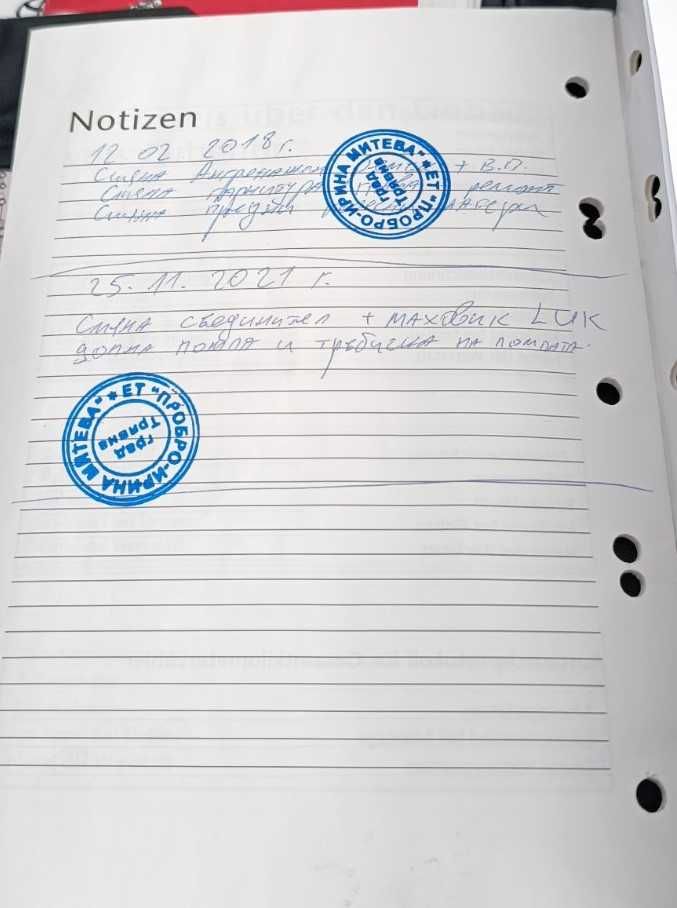 Notizen
12 02 2018 г.
Смяна Ангренажен + В.П.
Смяна гарнитура ремонт
Смяна предни
ЕТ "ПРОБРО-ИРИНА МИТЕВА" *
град
Трявна
25.11.2021 г.
Смяна съединител + маховик LUK
долна помпа и тръбичка на помпата.
ЕТ "ПРОБРО-ИРИНА МИТЕВА" *
град
Трявна